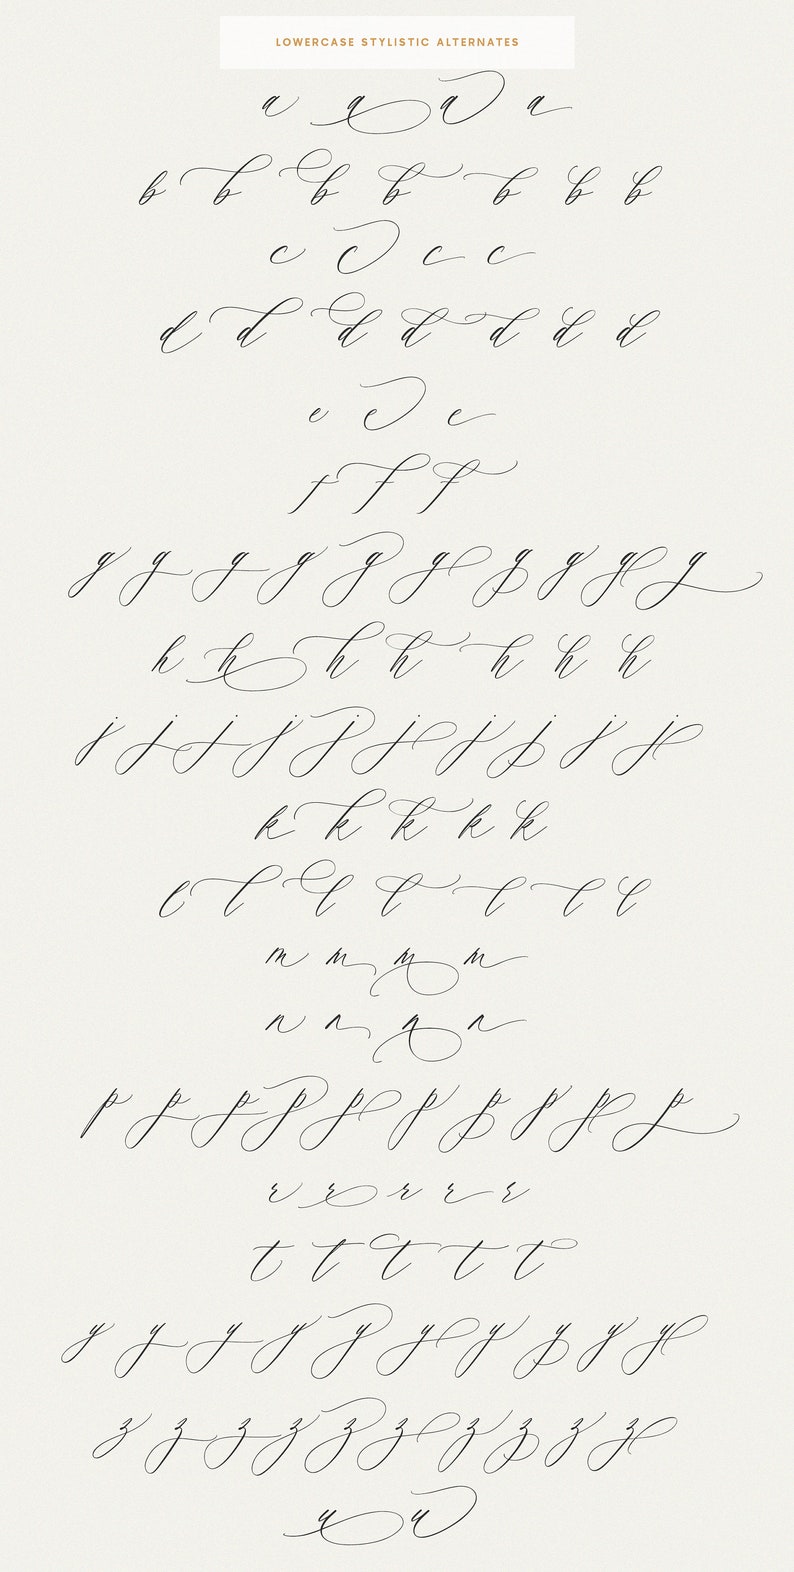 LOWERCASE STYLISTIC ALTERNATES
a a a a
b b b b b b b
c c c c
d d d d d d d
e e e
f f f
g g g g g g g g g g
h h h h h h h
j j j j j j j j j j
k k k k k
l l l l l l l
m m m m
n n n n
p p p p p p p p p p
r r r r r
t t t t t
y y y y y y y y y y
z z z z z z z z z z
u u